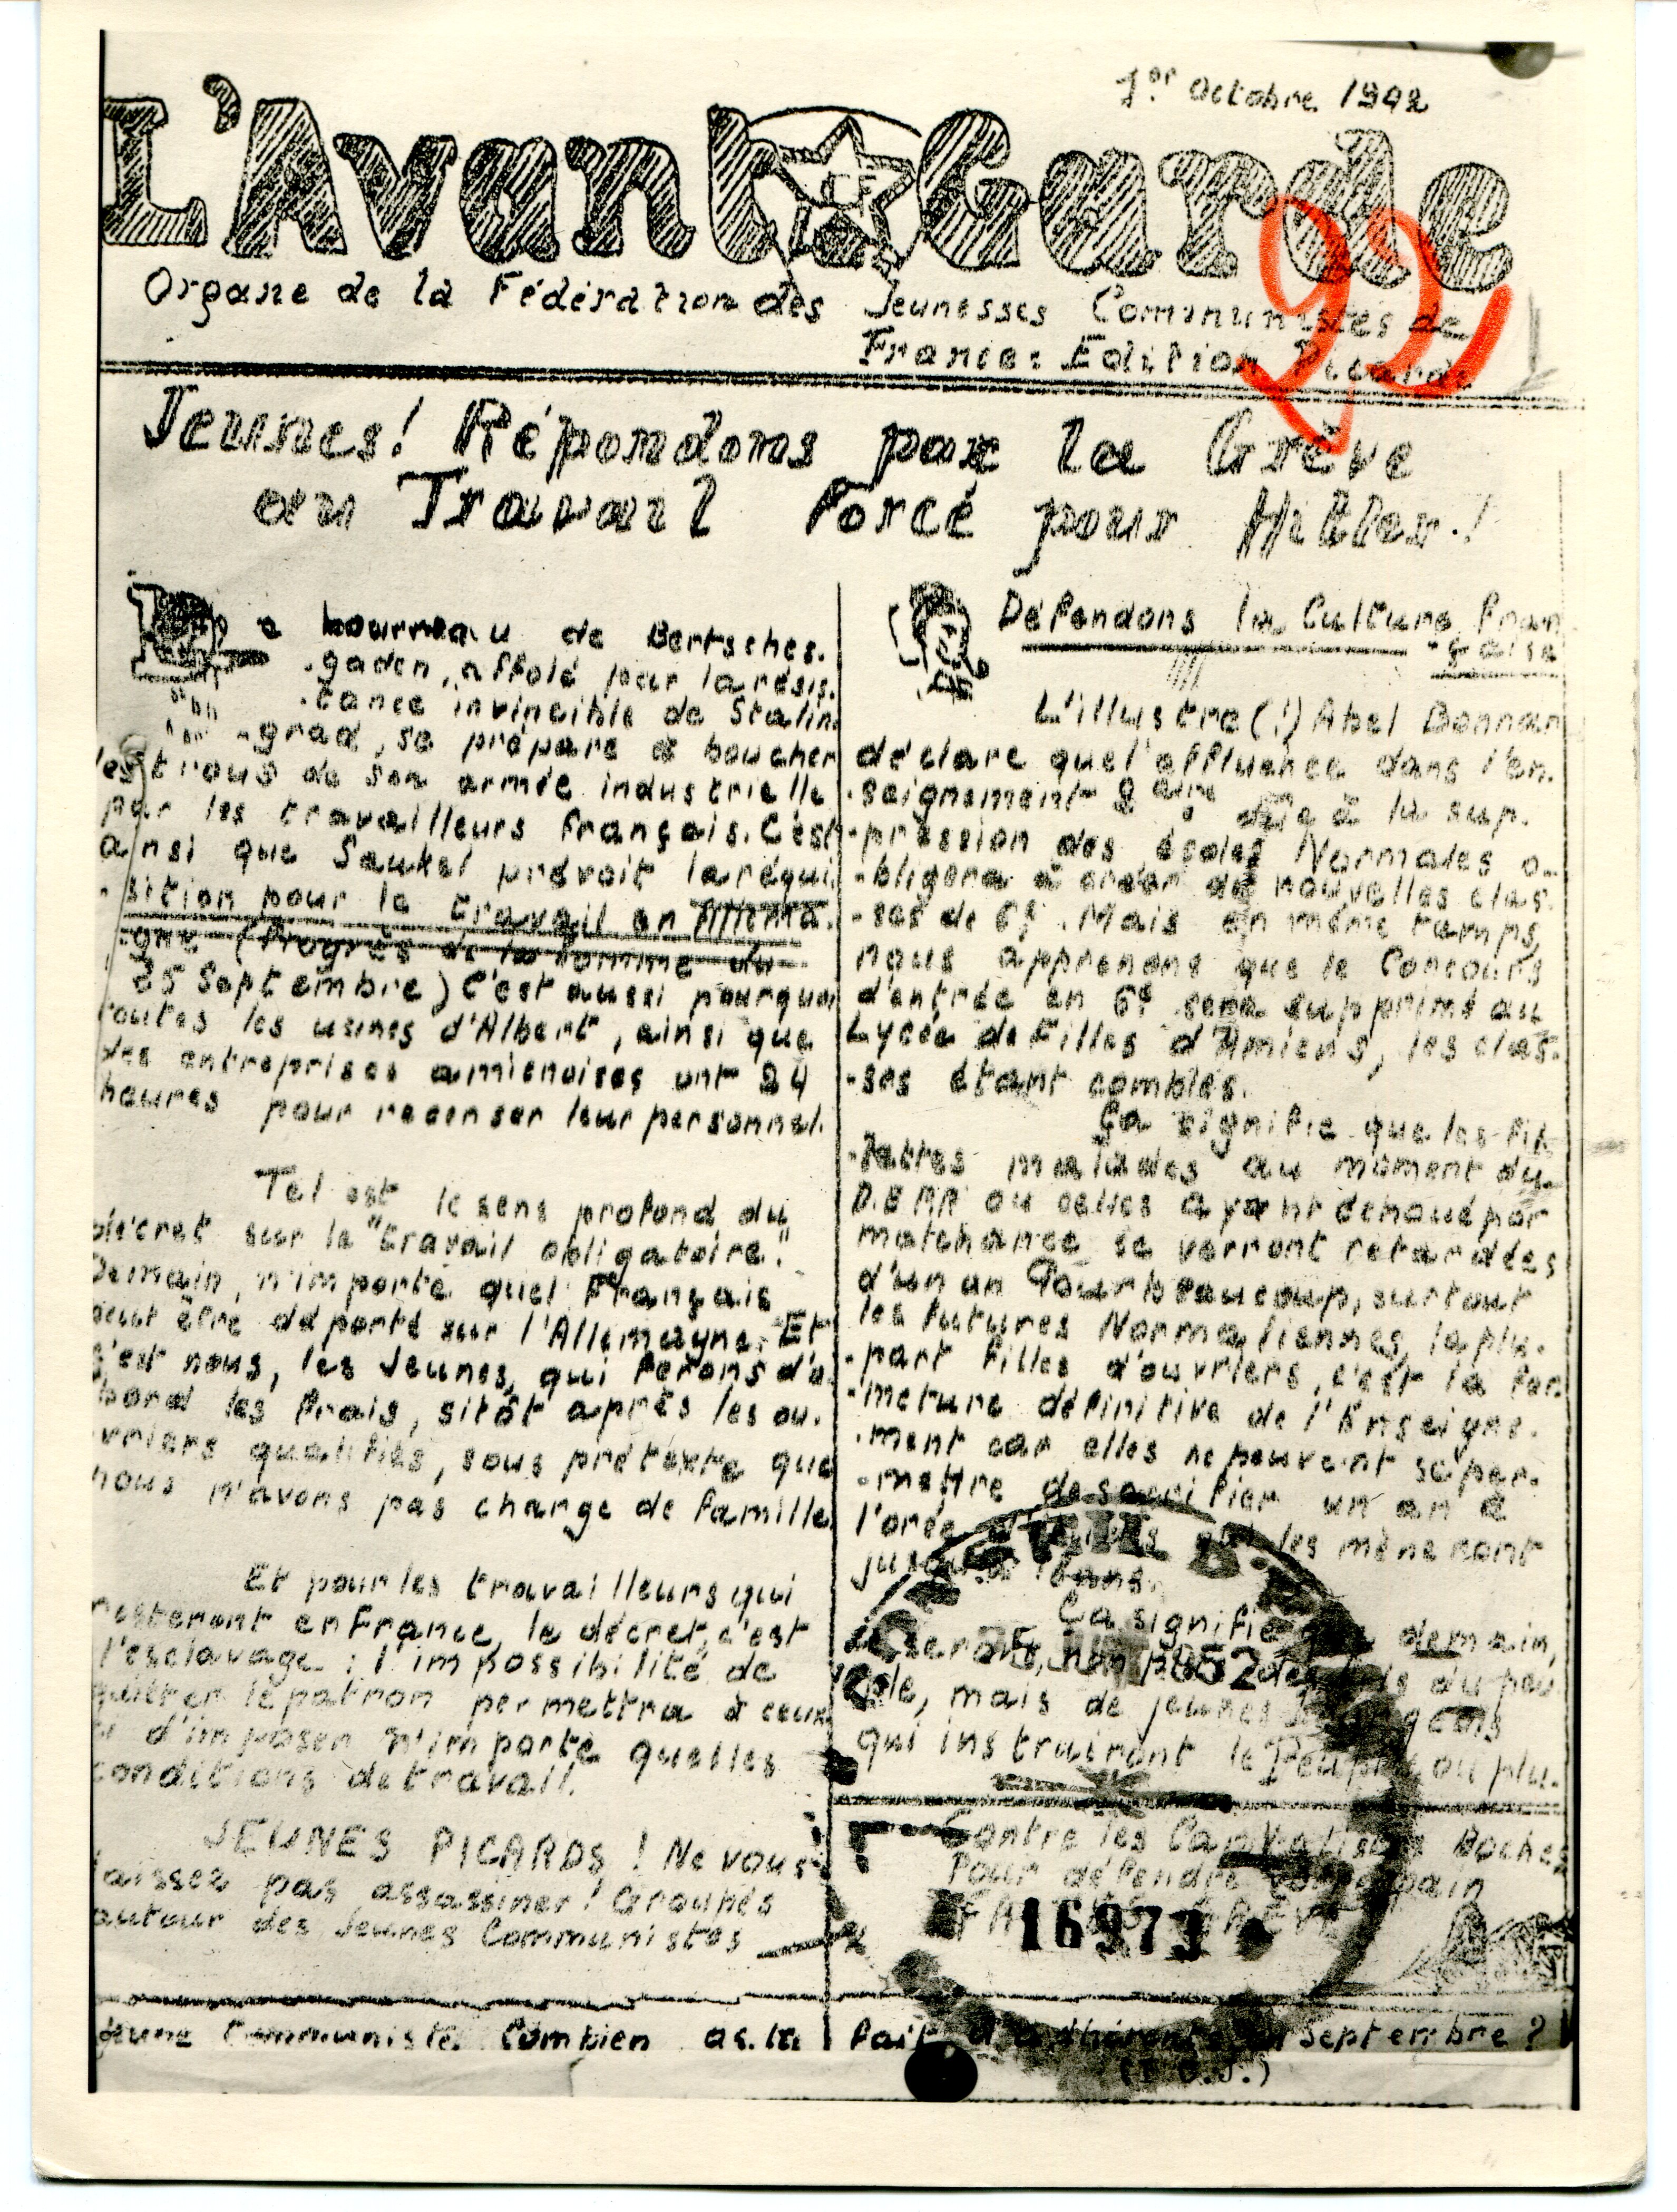 1er Octobre 1942
L'Avant Garde
92
Organe de la Fédération des Jeunesses Communistes de
France: Edition Picarde
Jeunes! Répondons par la Grève
au Travail Forcé pour Hitler!
Le bourreau de Bertsches-
-gaden, affolé par la résis-
-tance invincible de Stalin-
-grad, se prépare à boucher
les trous de son armée industrielle
par les travailleurs français. C'est
ainsi que Saukel prévoit la réqui-
-sition pour le travail en Allema-
-gne (Progrès de la Somme du
25 Septembre) C'est aussi pourquoi
toutes les usines d'Albert, ainsi que
des entreprises amienoises ont 24
heures pour recenser leur personnel.
Tel est le sens profond du
décret sur le "travail obligatoire".
Demain, n'importe quel Français
peut être déporté sur l'Allemagne. Et
c'est nous, les Jeunes, qui ferons d'a-
bord les frais, sitôt après les ou-
vriers qualifiés, sous prétexte que
nous n'avons pas charge de famille
Et pour les travailleurs qui
resteront en France, le décret, c'est
l'esclavage: l'impossibilité de
quitter le patron permettra à ceux
ci d'imposer n'importe quelles
conditions de travail.
JEUNES PICARDS! Ne vous
laissez pas assassiner! Groupés
autour des Jeunes Communistes
Défendons la Culture Fran-
-çaise
L'illustre (!) Abel Bonnar
déclare que l'affluence dans l'en-
-seignement 2aire dûe à la sup-
-pression des écoles Normales o-
-bligera à créer de nouvelles clas-
-ses de 6e. Mais en même temps,
nous apprenons que le Concours
d'entrée en 6e sera supprimé au
Lycée de Filles d'Amiens, les clas-
-ses étant combles.
Ça signifie que les fil-
-lettes malades au moment du
D.E.P.P. ou celles ayant échoué par
malchance se verront retardées
d'un an Pour beaucoup, surtout
les futures Normaliennes, la plu-
-part filles d'ouvriers, c'est la fer-
-meture définitive de l'Enseigne-
-ment car elles ne peuvent se per-
-mettre de sacrifier un an à
l'orée les mèneront
jusqu'à
Ça signifie demain,
ce seront, non du peu
ple, mais de jeunes
qui instruiront le Peuple ou plu-
Contre les Capitalistes Boches
Pour défendre votre pain
GRÈVE
1952
16973
Jeune Communiste. Combien as-tu fait d'adhérents en Septembre?